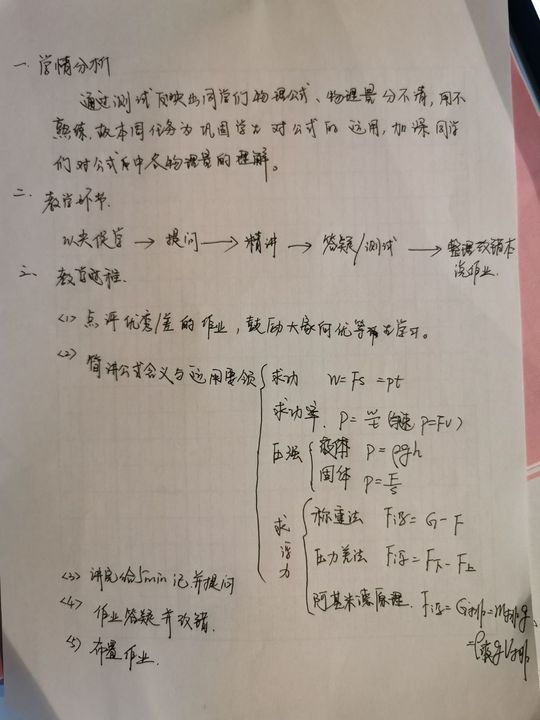 一. 学情分析
通过测试反映出同学们物理公式、物理量分不清,用不
熟练,故本周任务为巩固学生对公式的运用,加深同学
们对公式中各物理量的理解。
二. 教学环节
以夹促学 → 提问 → 精讲 → 答疑/测试 → 整理改错本
流作业.
三. 教育过程.
<1> 点评优秀/差的作业,鼓励大家向优等生学习。
<2> 简讲公式含义与运用要领
求功 W=Fs =pt
求功率. P=W/t (匀速 P=Fv)
压强
液体 P=ρgh
固体 P=F/S
求浮力
称重法 F浮=G-F
压力差法 F浮=F下-F上
阿基米德原理. F浮=G排=m排g
=ρ液gV排
<3> 讲完给5min记并提问
<4> 作业答疑并改错.
<5> 布置作业.